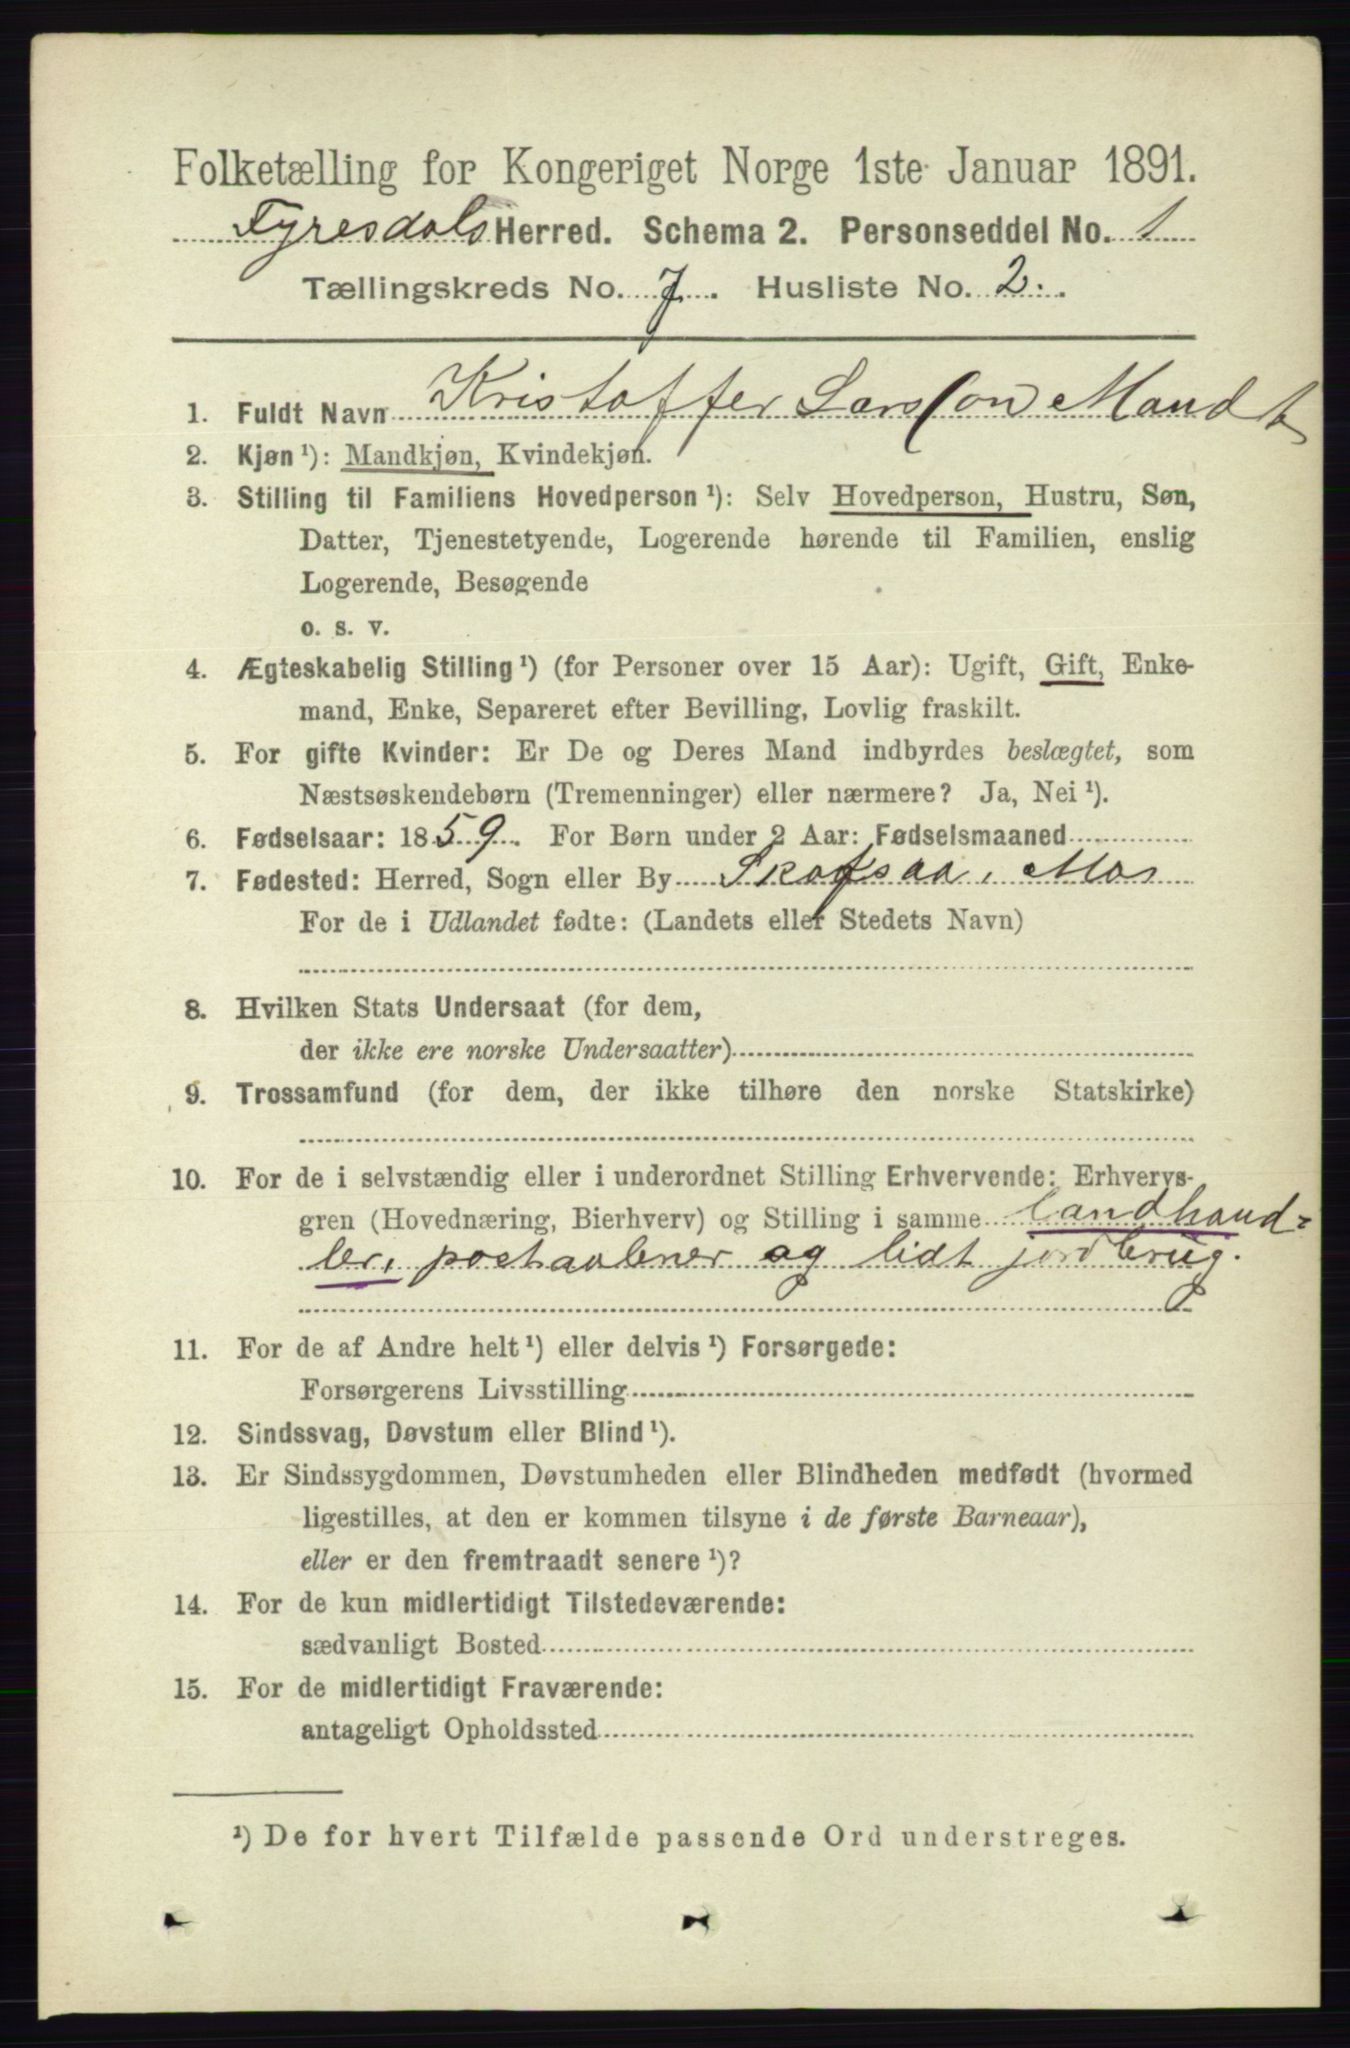 Folketælling for Kongeriget Norge 1ste Januar 1891.
Fyresdals Herred. Schema 2. Personseddel No. 1
Tællingskreds No. 7. Husliste No. 2.
1. Fuldt Navn Kristoffer Larsson Mandt
2. Kjøn ¹): Mandkjøn, Kvindekjøn.
3. Stilling til Familiens Hovedperson ¹): Selv Hovedperson, Hustru, Søn,
Datter, Tjenestetyende, Logerende hørende til Familien, enslig
Logerende, Besøgende
o. s. v.
4. Ægteskabelig Stilling ¹) (for Personer over 15 Aar): Ugift, Gift, Enke-
mand, Enke, Separeret efter Bevilling, Lovlig fraskilt.
5. For gifte Kvinder: Er De og Deres Mand indbyrdes beslægtet, som
Næstsøskendebørn (Tremenninger) eller nærmere? Ja, Nei ¹).
6. Fødselsaar: 1859. For Børn under 2 Aar: Fødselsmaaned
7. Fødested: Herred, Sogn eller By Skafsaa, Mo
For de i Udlandet fødte: (Landets eller Stedets Navn)
8. Hvilken Stats Undersaat (for dem,
der ikke ere norske Undersaatter)
9. Trossamfund (for dem, der ikke tilhøre den norske Statskirke)
10. For de i selvstændig eller i underordnet Stilling Erhvervende: Erhvervs-
gren (Hovednæring, Bierhverv) og Stilling i samme landhand=
ler, postaabner og lidt jordbrug.
11. For de af Andre helt ¹) eller delvis ¹) Forsørgede:
Forsørgerens Livsstilling
12. Sindssvag, Døvstum eller Blind ¹).
13. Er Sindssygdommen, Døvstumheden eller Blindheden medfødt (hvormed
ligestilles, at den er kommen tilsyne i de første Barneaar),
eller er den fremtraadt senere ¹)?
14. For de kun midlertidigt Tilstedeværende:
sædvanligt Bosted
15. For de midlertidigt Fraværende:
antageligt Opholdssted
¹) De for hvert Tilfælde passende Ord understreges.